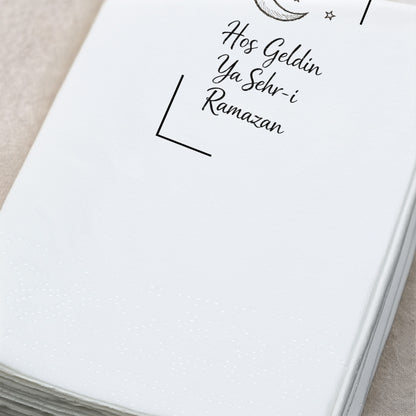 Hoş Geldin
Ya Şehr-i
Ramazan